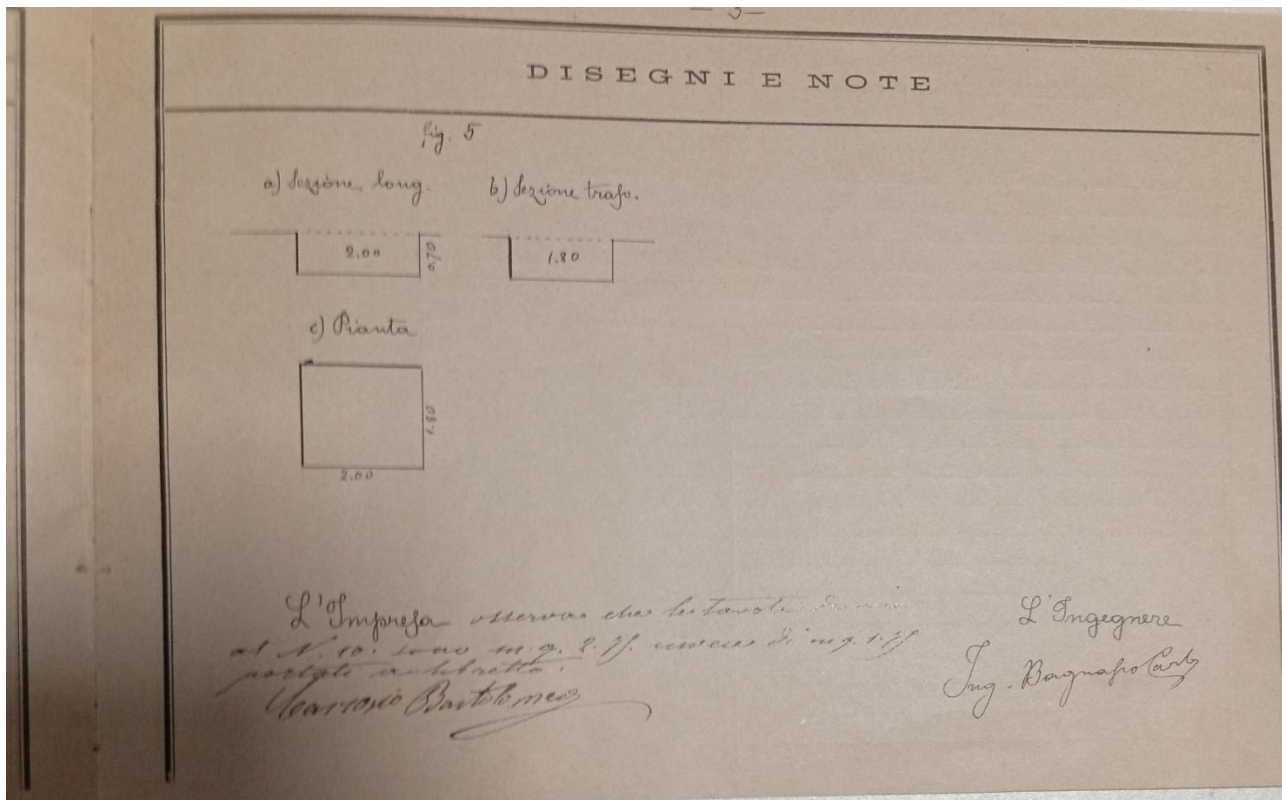 — 5 —
DISEGNI E NOTE
fig. 5
a) Sezione long.
b) Sezione trasv.
2.00
0.70
1.80
c) Pianta
1.80
2.00
L'Impresa osserva che le tavole
al N. 10. sono m.q. 2. invece di m.q. 1.
portati a libretto.
Bartolomeo
L'Ingegnere
Ing. Bagnasco Carlo